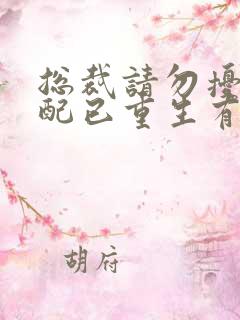 总裁請勿擾
配已重生有
胡府